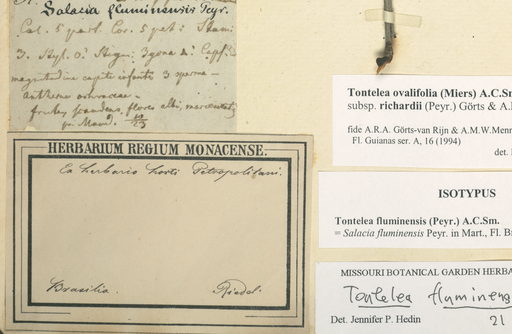 Salacia fluminensis Peyr.
Cal. 5 part. Cor. 5 pet. Stam.
3. Styl. 0. Stigm. 3gona
magnitudine capitis infantis 3 sperma -
antherae ochraceae -
frutex scandens, flores albi,
HERBARIUM REGIUM MONACENSE.
Ex herbario horti Petropolitani.
Brasilia.
Riedel.
Tontelea ovalifolia (Miers) A.C.Sm
subsp. richardii (Peyr.) Görts & A.
fide A.R.A. Görts-van Rijn & A.M.W.Menn
Fl. Guianas ser. A, 16 (1994)
det.
ISOTYPUS
Tontelea fluminensis (Peyr.) A.C.Sm.
= Salacia fluminensis Peyr. in Mart., Fl. Br
MISSOURI BOTANICAL GARDEN HERBA
Tontelea fluminens
Det. Jennifer P. Hedin 21